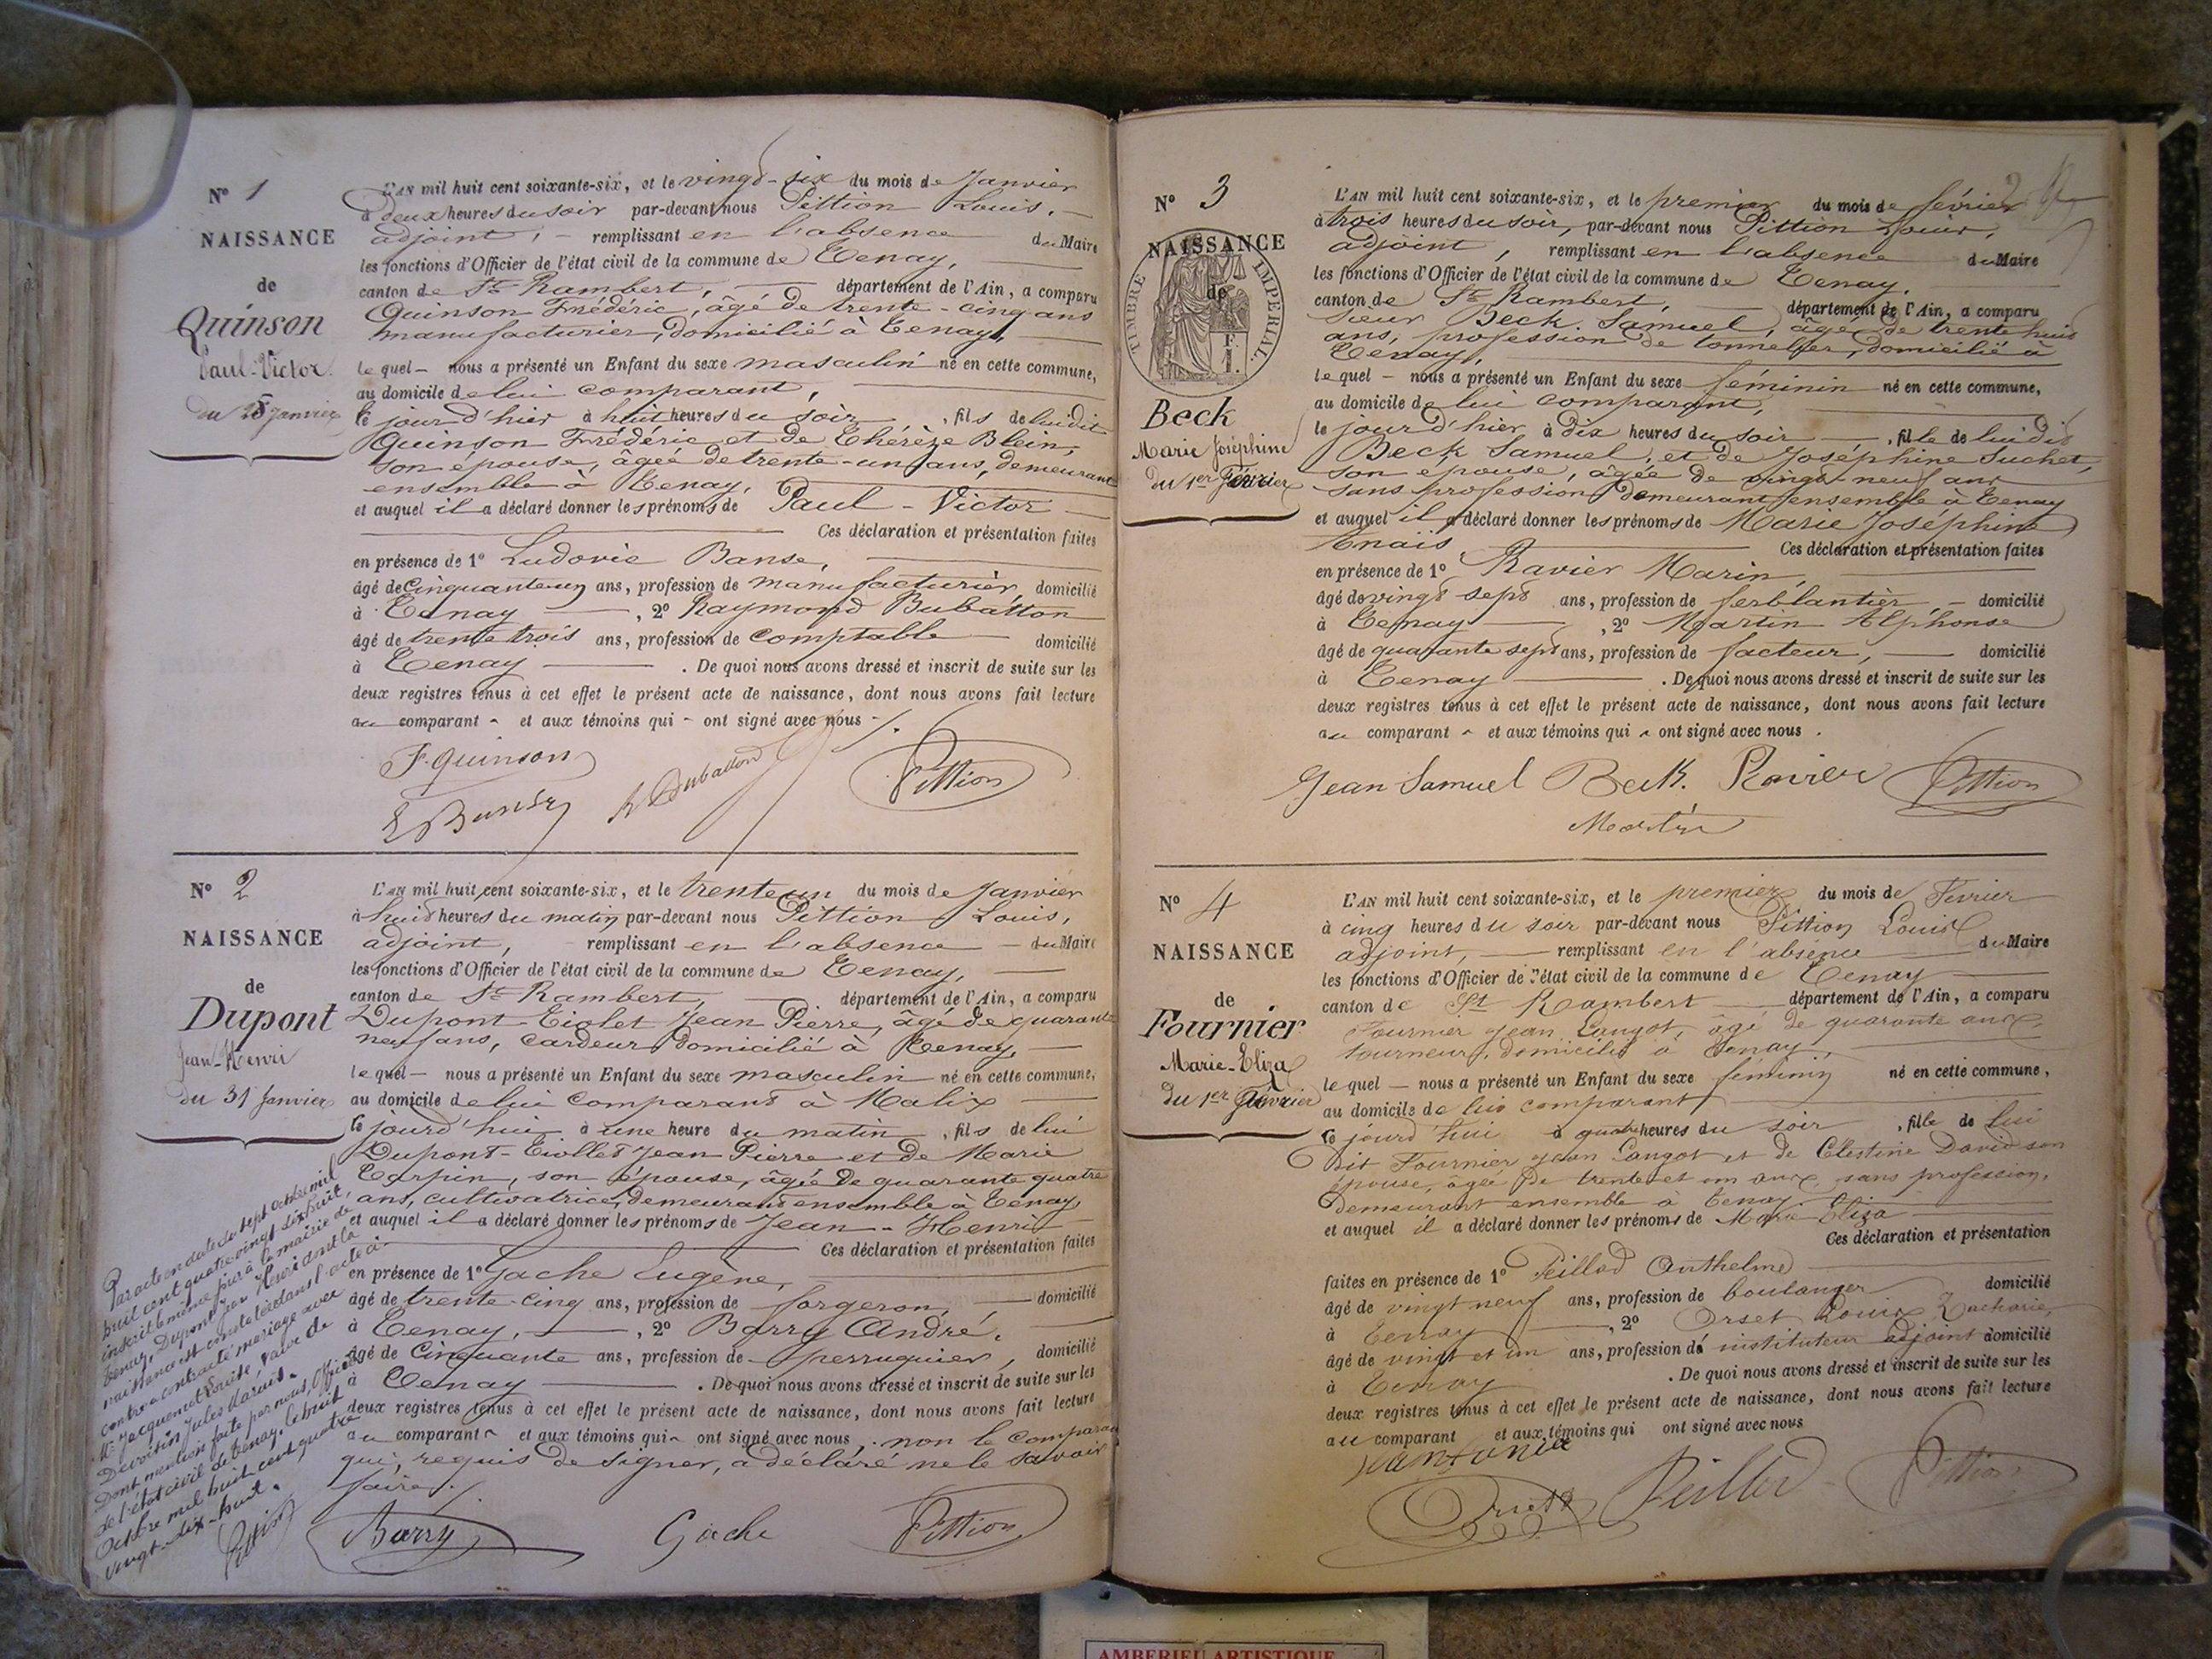 N° 1
NAISSANCE
de
Quinson
Paul-Victor.
du 25 Janvier
L'AN mil huit cent soixante-six, et le vingt-six du mois de Janvier
à deux heures du soir par-devant nous Pittion Louis,
adjoint, remplissant en l'absence du Maire
les fonctions d'Officier de l'état civil de la commune de Tenay,
canton de St Rambert, département de l'Ain, a comparu
Quinson Frédéric, âgé de trente-cinq ans
manufacturier, domicilié à Tenay,
lequel nous a présenté un Enfant du sexe masculin né en cette commune,
au domicile de lui comparant,
le jour d'hier à huit heures du soir, fils de lui dit
Quinson Frédéric et de Thérèze Blein,
son épouse, âgée de trente-un ans, demeurant
ensemble à Tenay,
et auquel il a déclaré donner les prénoms de Paul-Victor
Ces déclaration et présentation faites
en présence de 1° Ludovic Banse,
âgé de cinquante un ans, profession de manufacturier, domicilié
à Tenay, 2° Raymond Dubatton
âgé de trente trois ans, profession de comptable domicilié
à Tenay. De quoi nous avons dressé et inscrit de suite sur les
deux registres tenus à cet effet le présent acte de naissance, dont nous avons fait lecture
au comparant et aux témoins qui ont signé avec nous.
F. Quinson
Pittion
N° 2
NAISSANCE
de
Dupont
Jean-Henri
du 31 Janvier
L'AN mil huit cent soixante-six, et le trente un du mois de Janvier
à huit heures du matin par-devant nous Pittion Louis,
adjoint, remplissant en l'absence du Maire
les fonctions d'Officier de l'état civil de la commune de Tenay,
canton de St Rambert, département de l'Ain, a comparu
Dupont-Tiolet Jean Pierre, âgé de quarante
neuf ans, cardeur domicilié à Tenay,
lequel nous a présenté un Enfant du sexe masculin né en cette commune,
au domicile de lui comparant à Malix
le jourd'hui à une heure du matin, fils de lui
Dupont-Tiollet Jean Pierre et de Marie
Carpin, son épouse, âgée de quarante quatre
ans, cultivatrice, demeurant ensemble à Tenay,
et auquel il a déclaré donner les prénoms de Jean-Henri
Ces déclaration et présentation faites
en présence de 1° Gache Eugène,
âgé de trente-cinq ans, profession de forgeron, domicilié
à Tenay, 2° Barry André,
âgé de Cinquante ans, profession de perruquier, domicilié
à Tenay. De quoi nous avons dressé et inscrit de suite sur les
deux registres tenus à cet effet le présent acte de naissance, dont nous avons fait lecture
au comparant et aux témoins qui ont signé avec nous, non le comparant
qui, requis de signer, a déclaré ne le savoir
faire.
Barry Gache Pittion
Par acte en date du sept octobre mil
huit cent quatre vingt dix huit,
inscrit le même jour à la mairie de
Tenay, Dupont Jean Henri dont la
naissance est constatée dans l'acte ci-
contre a contracté mariage avec
Me Jacquemet Louise, veuve de
Devoisin Jules Marius.
Dont mention faite par nous, Officier
de l'état civil de Tenay, le huit
Octobre mil huit cent quatre
vingt-dix-huit.
Pittion
N° 3
NAISSANCE
de
TIMBRE IMPERIAL
Beck
Marie Joséphine
du 1er Février
L'AN mil huit cent soixante-six, et le premier du mois de février
à trois heures du soir, par-devant nous Pittion Louis,
adjoint, remplissant en l'absence du Maire
les fonctions d'Officier de l'état civil de la commune de Tenay,
canton de St Rambert, département de l'Ain, a comparu
sieur Beck Samuel, âgé de trente huit
ans, profession de tonnelier, domicilié à
Tenay,
lequel nous a présenté un Enfant du sexe féminin né en cette commune,
au domicile de lui comparant,
le jour d'hier à dix heures du soir, fille de lui dit
Beck Samuel, et de Joséphine Suchet,
son épouse, âgée de vingt neuf ans
sans profession demeurant ensemble à Tenay
et auquel il a déclaré donner les prénoms de Marie Joséphine
Anaïs, Ces déclaration et présentation faites
en présence de 1° Ravier Marin,
âgé de vingt sept ans, profession de ferblantier, domicilié
à Tenay, 2° Martin Alphonse
âgé de quarante sept ans, profession de facteur, domicilié
à Tenay. De quoi nous avons dressé et inscrit de suite sur les
deux registres tenus à cet effet le présent acte de naissance, dont nous avons fait lecture
au comparant et aux témoins qui ont signé avec nous.
Jean Samuel Beck. Ravier Pittion
Martin
N° 4
NAISSANCE
de
Fournier
Marie-Eliza
du 1er Février
L'AN mil huit cent soixante-six, et le premier du mois de Février
à cinq heures du soir par-devant nous Pittion Louis
adjoint, remplissant en l'absence du Maire
les fonctions d'Officier de l'état civil de la commune de Tenay
canton de St Rambert département de l'Ain, a comparu
Fournier Jean Langot, âgé de quarante ans,
tourneur, domicilié à Tenay,
lequel nous a présenté un Enfant du sexe féminin né en cette commune,
au domicile de lui comparant
le jourd'hui à quatre heures du soir, fille de lui
dit Fournier Jean Langot et de Célestine David son
épouse, âgée de trente et un ans, sans profession,
demeurant ensemble à Tenay
et auquel il a déclaré donner les prénoms de Marie Eliza
Ces déclaration et présentation
faites en présence de 1° Peillod Anthelme
âgé de vingt neuf ans, profession de boulanger domicilié
à Tenay, 2° Orset Louis Zacharie,
âgé de vingt et un ans, profession de instituteur adjoint domicilié
à Tenay. De quoi nous avons dressé et inscrit de suite sur les
deux registres tenus à cet effet le présent acte de naissance, dont nous avons fait lecture
au comparant et aux témoins qui ont signé avec nous
Orset Peillod Pittion
AMBERIEU ARTISTIQUE